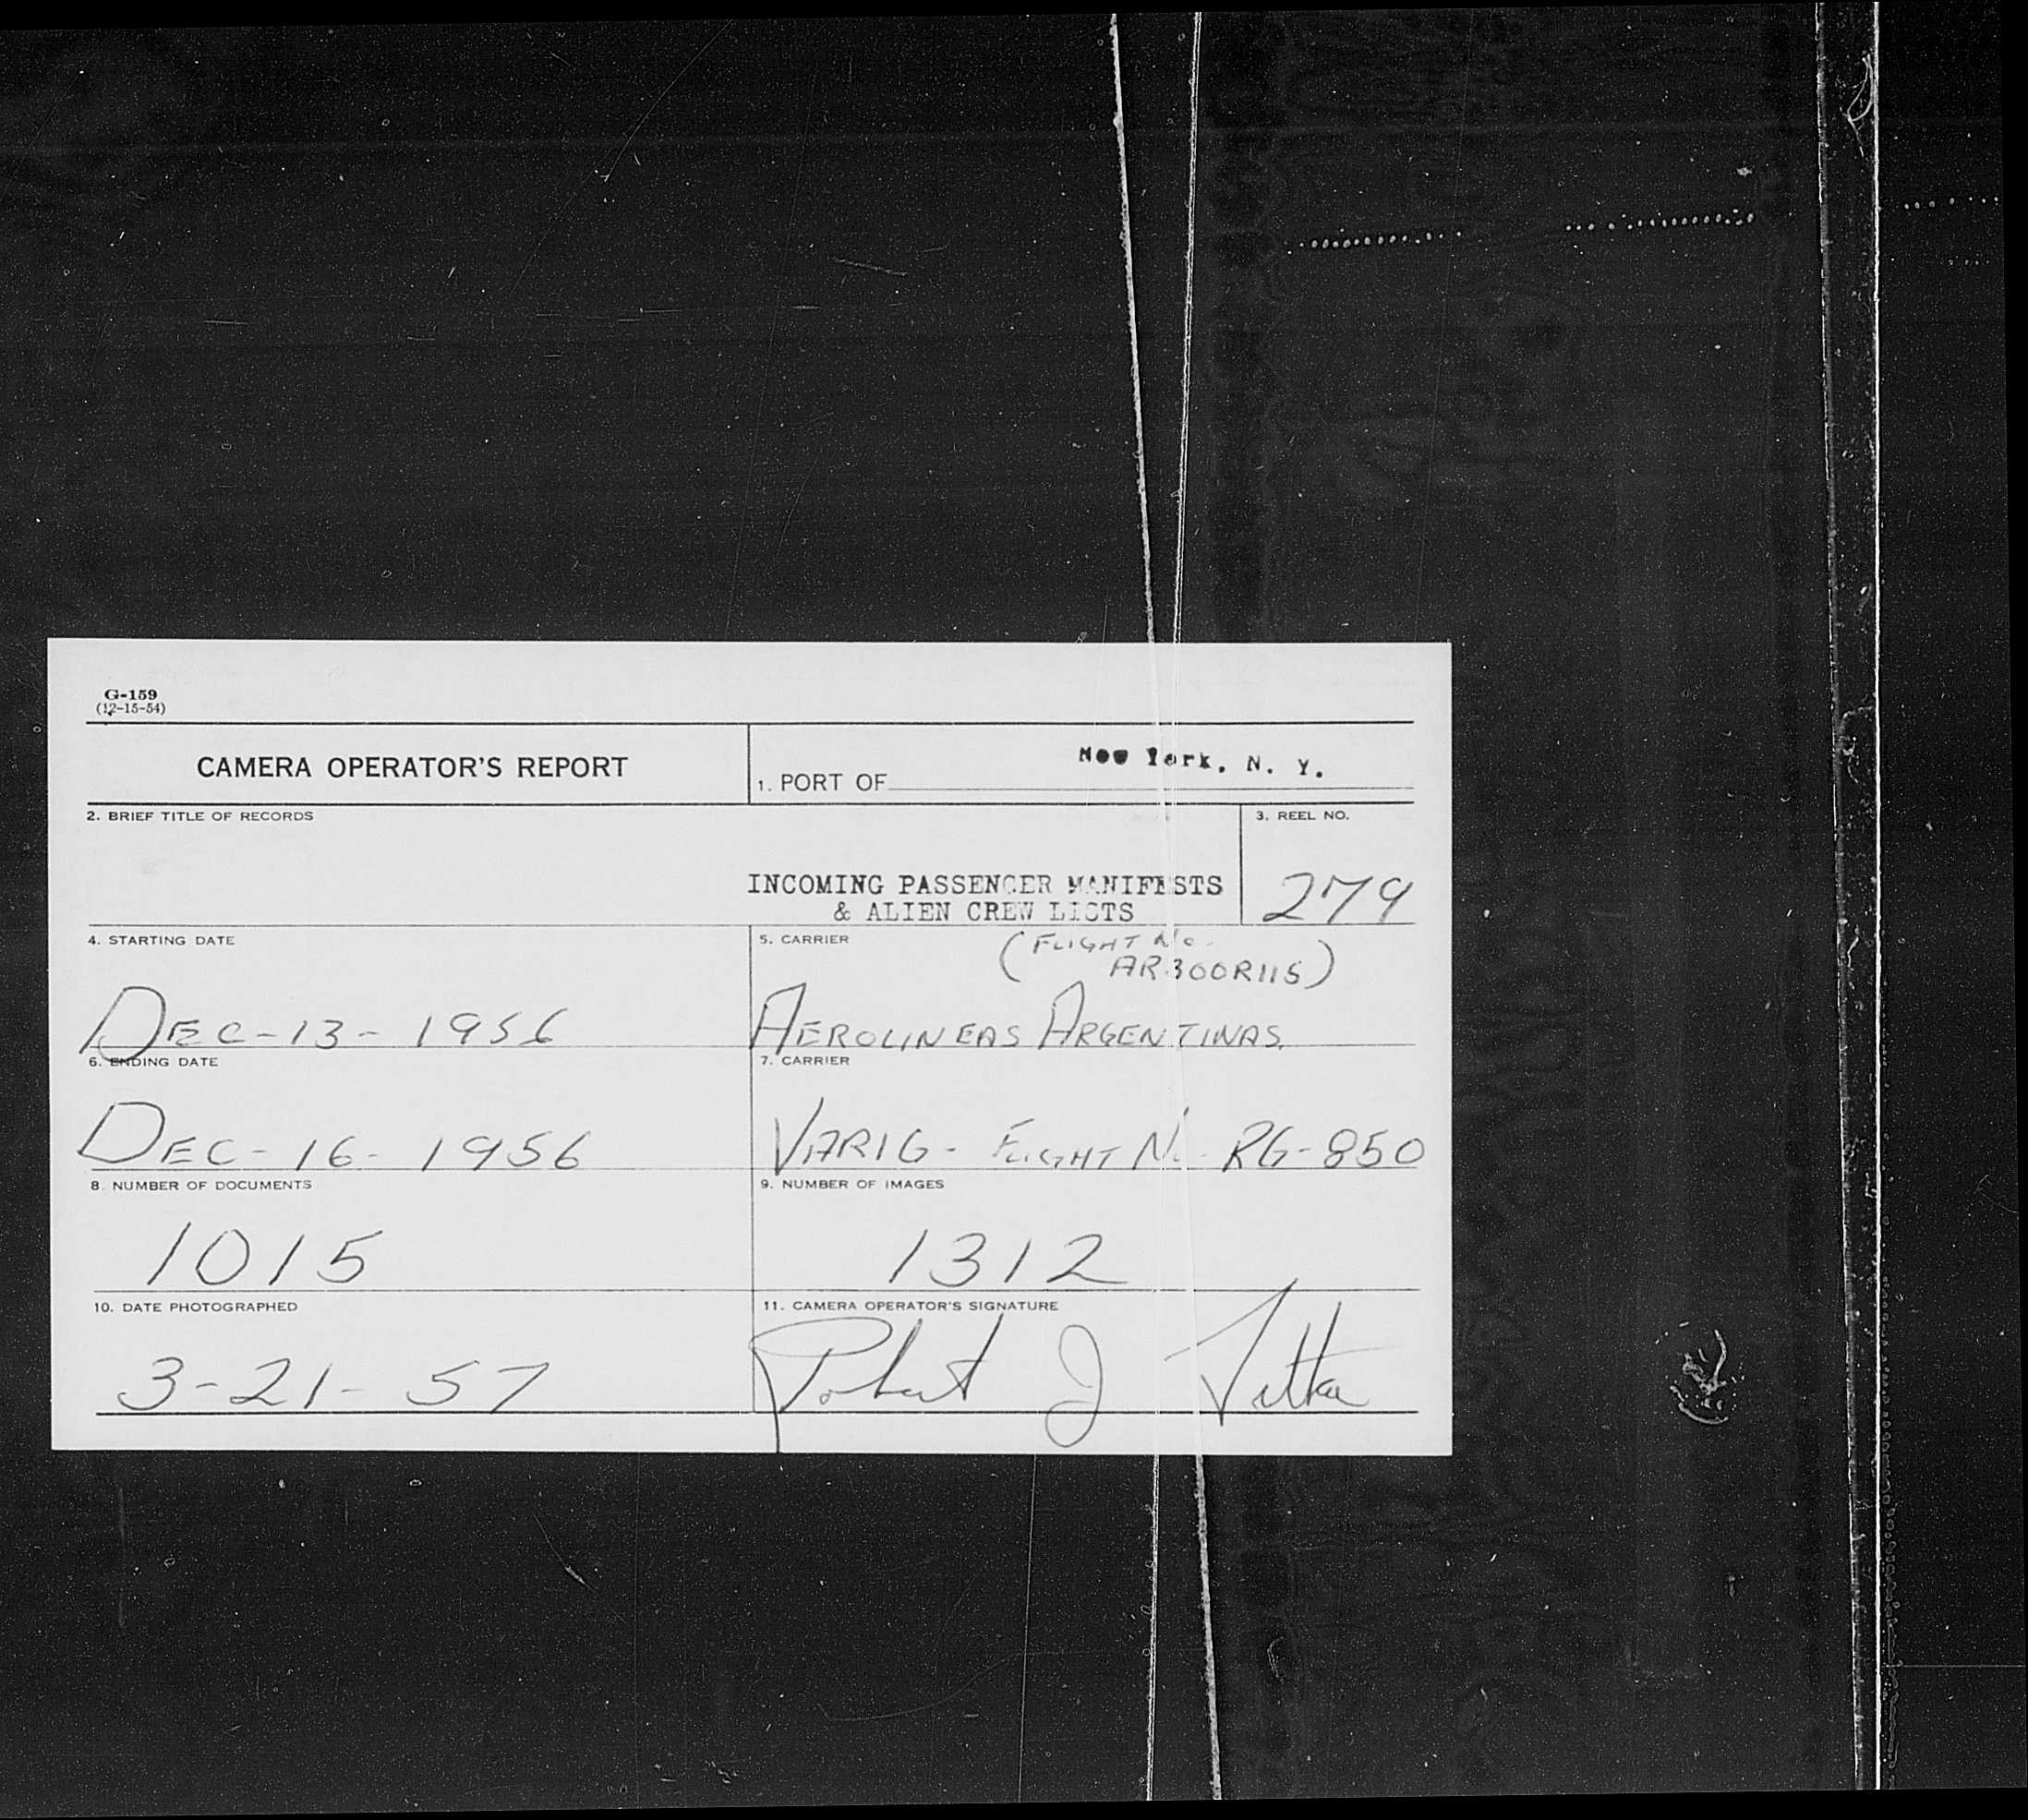 G-159
(12-15-54)
CAMERA OPERATOR'S REPORT
1. PORT OF New York, N. Y.
2. BRIEF TITLE OF RECORDS
INCOMING PASSENGER MANIFESTS
& ALIEN CREW LISTS
3. REEL NO.
279
4. STARTING DATE
DEC-13-1956
5. CARRIER
(FLIGHT No.
AR300R115)
AEROLINEAS ARGENTINAS.
6. ENDING DATE
DEC-16-1956
7. CARRIER
VARIG- FLIGHT No. RG-850
8. NUMBER OF DOCUMENTS
1015
9. NUMBER OF IMAGES
1312
10. DATE PHOTOGRAPHED
3-21-57
11. CAMERA OPERATOR'S SIGNATURE
Robert J